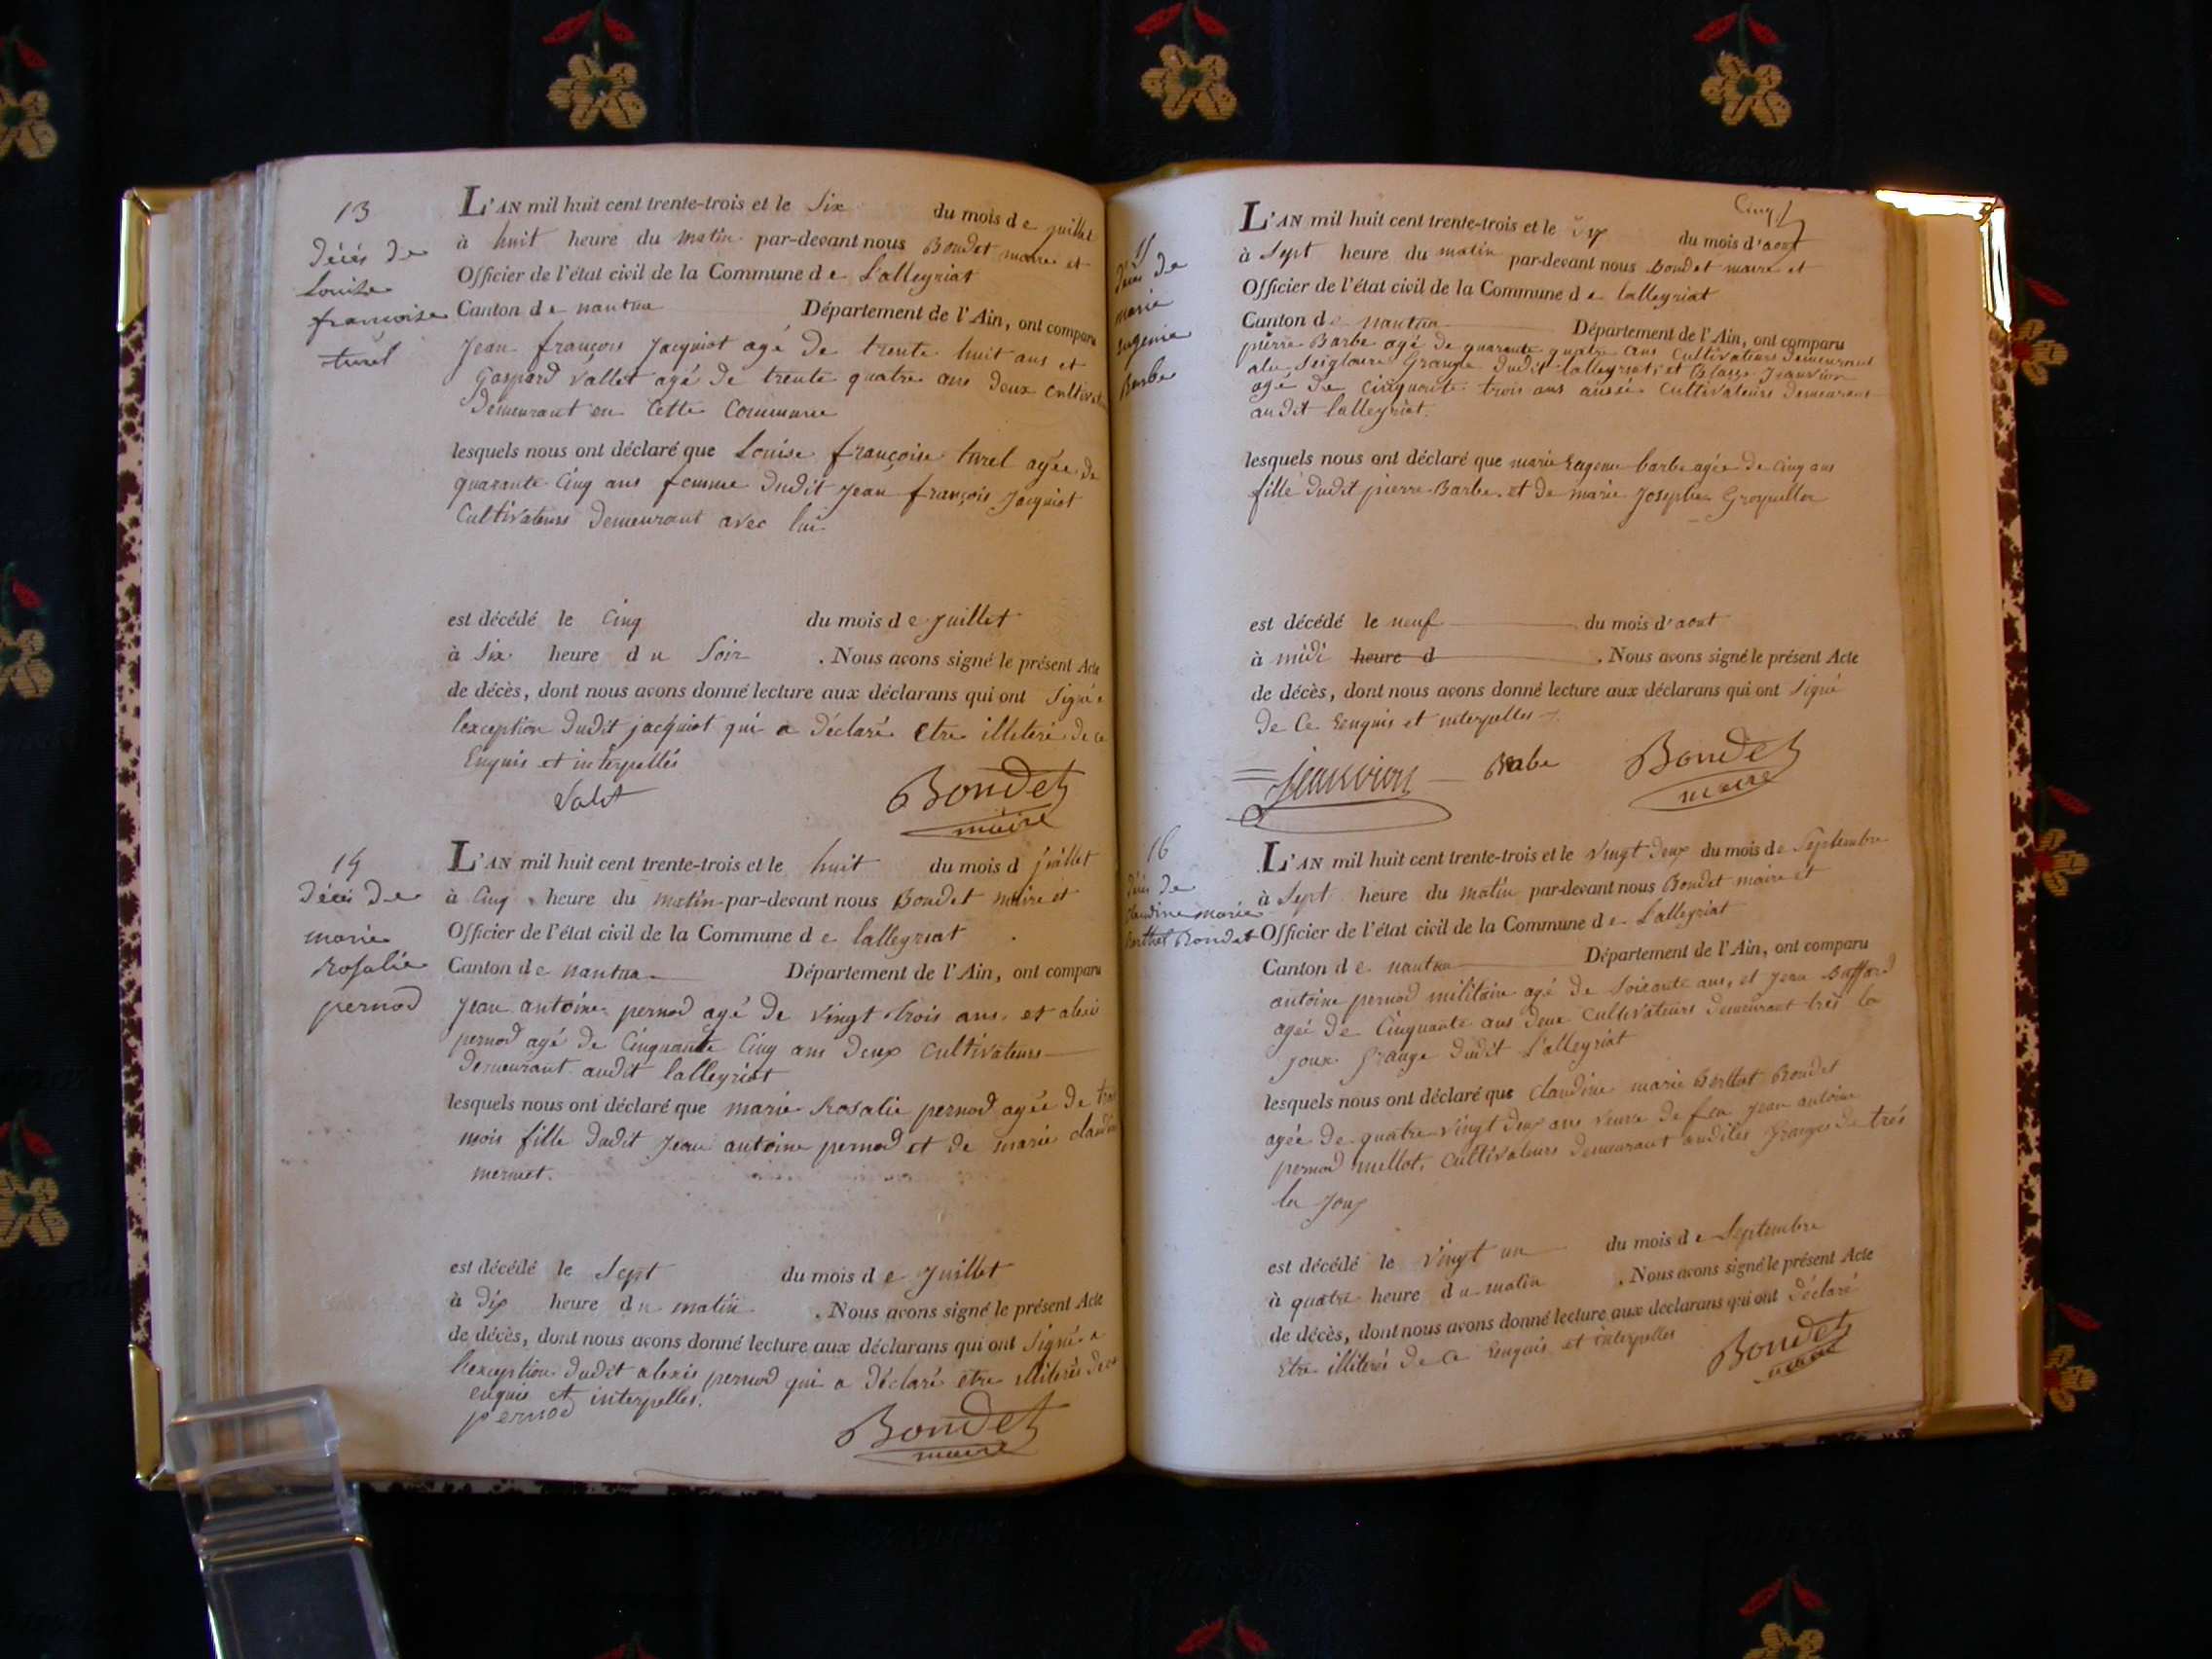 13
décès de
Louise
françoise
turel
L'AN mil huit cent trente-trois et le Six du mois de juillet
à huit heure du matin par-devant nous Bondet maire et
Officier de l'état civil de la Commune de Lalleyriat
Canton de nantua Département de l'Ain, ont comparu
Jean françois Jacquiot agé de trente huit ans et
Gaspard Vallet agé de trente quatre ans deux cultivateurs
demeurant en cette commune
lesquels nous ont déclaré que Louise françoise turel agée de
quarante Cinq ans femme dudit Jean françois Jacquiot
Cultivateurs demeurant avec lui
est décédé le Cinq du mois de Juillet
à Six heure du Soir . Nous avons signé le présent Acte
de décès, dont nous avons donné lecture aux déclarans qui ont Signé a
lexception dudit jacquiot qui a déclaré Etre illiteré de ce
Enquis et interpellés
Valet
Bondet
maire
14
décès de
marie
Rosalie
pernod
L'AN mil huit cent trente-trois et le huit du mois d juillet
à Cinq heure du matin par-devant nous Bondet maire et
Officier de l'état civil de la Commune de lalleyriat
Canton de nantua Département de l'Ain, ont comparu
Jean antoine pernod agé de vingt trois ans et alexis
pernod agé de Cinquante Cinq ans deux cultivateurs
demeurant audit lalleyriat
lesquels nous ont déclaré que marie Rosalie pernod agée de trois
mois fille dudit Jean antoine pernod et de marie claudine
mermet.
est décédé le Sept du mois de Juillet
à dix heure du matin . Nous avons signé le présent Acte
de décès, dont nous avons donné lecture aux déclarans qui ont Signé a
lexception dudit alexis pernod qui a déclaré etre illiterés de ce
enquis et interpelles.
pernod
Bondet
maire
Cinq
15
décès de
marie
Eugenie
Barbe
L'AN mil huit cent trente-trois et le dix du mois d'aout
à Sept heure du matin par-devant nous Bondet maire et
Officier de l'état civil de la Commune de lalleyriat
Canton de nantua Département de l'Ain, ont comparu
pierre Barbe agé de quarante quatre ans cultivateurs demeurant
Grange dudit lalleyriat, et Jeanvion
agé de cinquante trois ans aussi cultivateurs demeurant
audit lalleyriat.
lesquels nous ont déclaré que marie Eugenie barbe agée de Cinq ans
fille dudit pierre Barbe et de marie Josephe
est décédé le neuf du mois d'aout
à midi heure d . Nous avons signé le présent Acte
de décès, dont nous avons donné lecture aux déclarans qui ont Signé
de Ce Enquis et interpelles
Jeanvion
Babe
Bondet
maire
16
décès de
claudine marie
Berthet Bondet
L'AN mil huit cent trente-trois et le vingt deux du mois de Septembre
à Sept heure du matin par-devant nous Bondet maire et
Officier de l'état civil de la Commune de Lalleyriat
Canton de nantua Département de l'Ain, ont comparu
antoine pernod militaire agé de Soixante ans, et Jean Buffard
agée de Cinquante ans deux cultivateurs demeurant tres la
joux Grange dudit Lalleyriat
lesquels nous ont déclaré que claudine marie Berthet Bondet
agée de quatre vingt deux ans veuve de feu Jean antoine
pernod mellot, cultivateurs demeurant audites Granges de trés
la Joux
est décédé le vingt un du mois de Septembre
à quatre heure du matin . Nous avons signé le présent Acte
de décès, dont nous avons donné lecture aux déclarans qui ont déclaré
Etre illiterés de Ce Enquis et interpelles
Bondet
maire